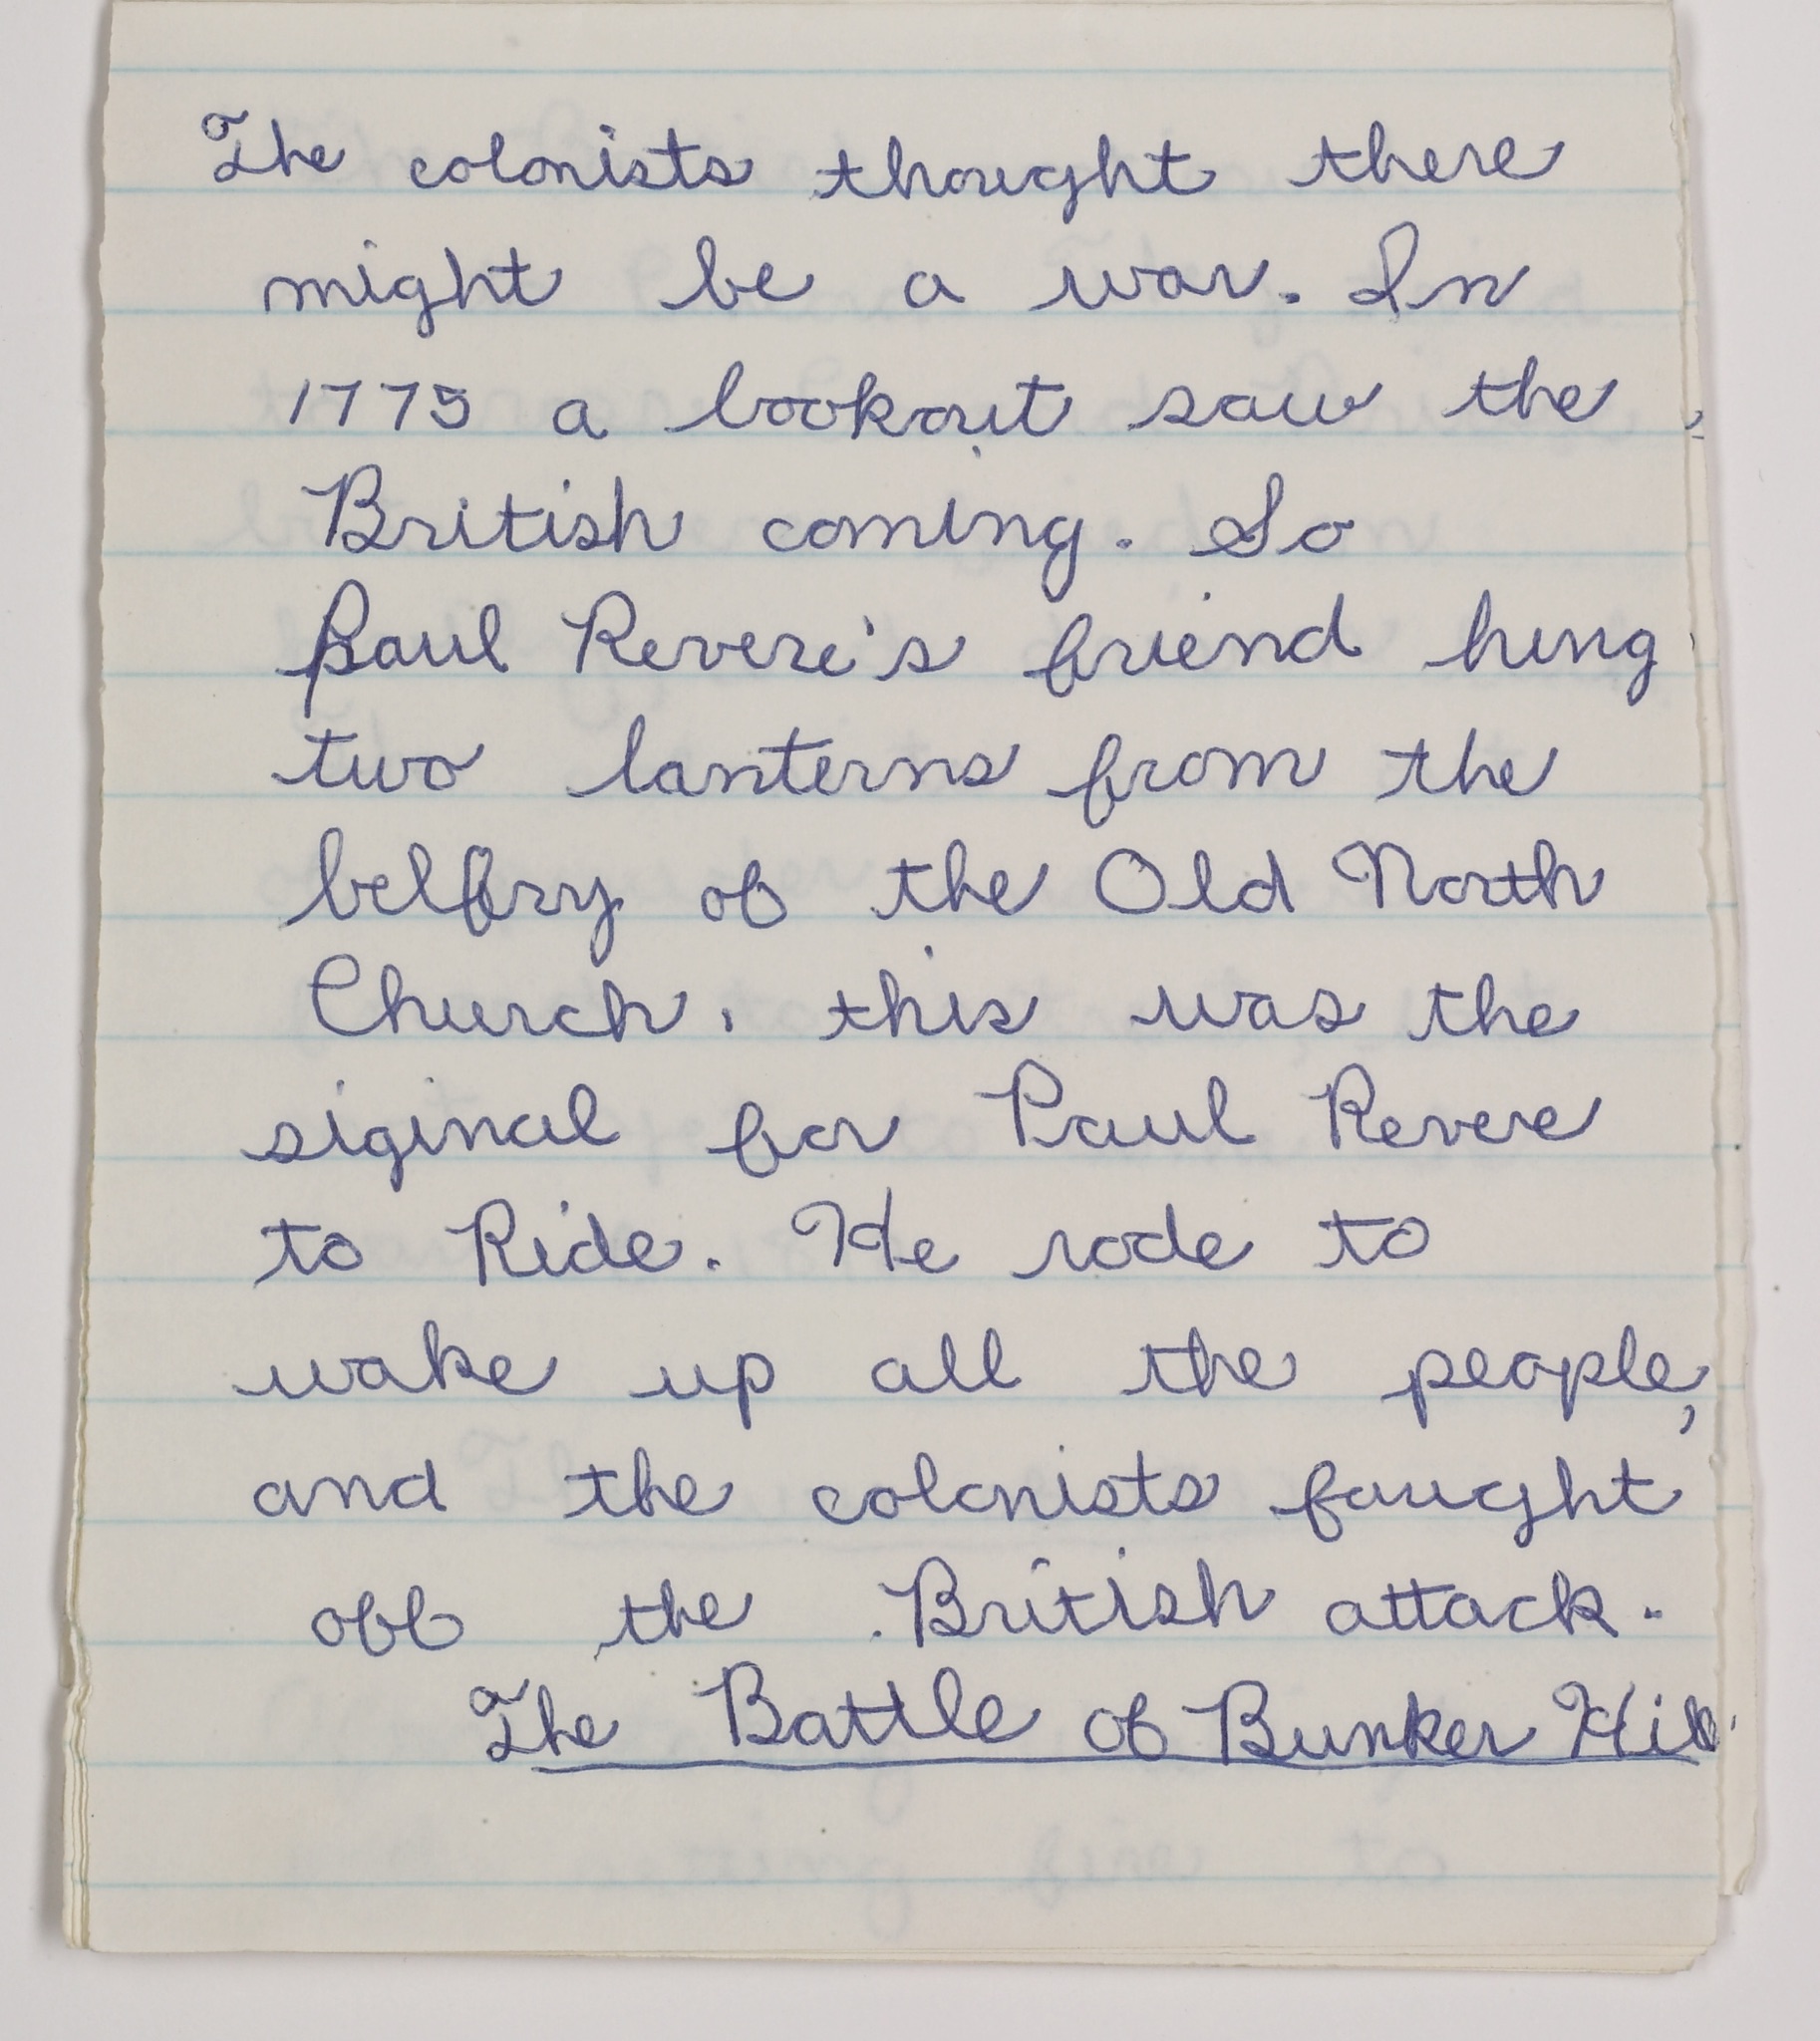 The colonists thought there
might be a war. In
1775 a lookout saw the
British coming. So
Paul Revere's friend hung
two lanterns from the
belfry of the Old North
Church, this was the
siginal for Paul Revere
to Ride. He rode to
wake up all the people,
and the colonists faught
off the British attack.
The Battle of Bunker Hill